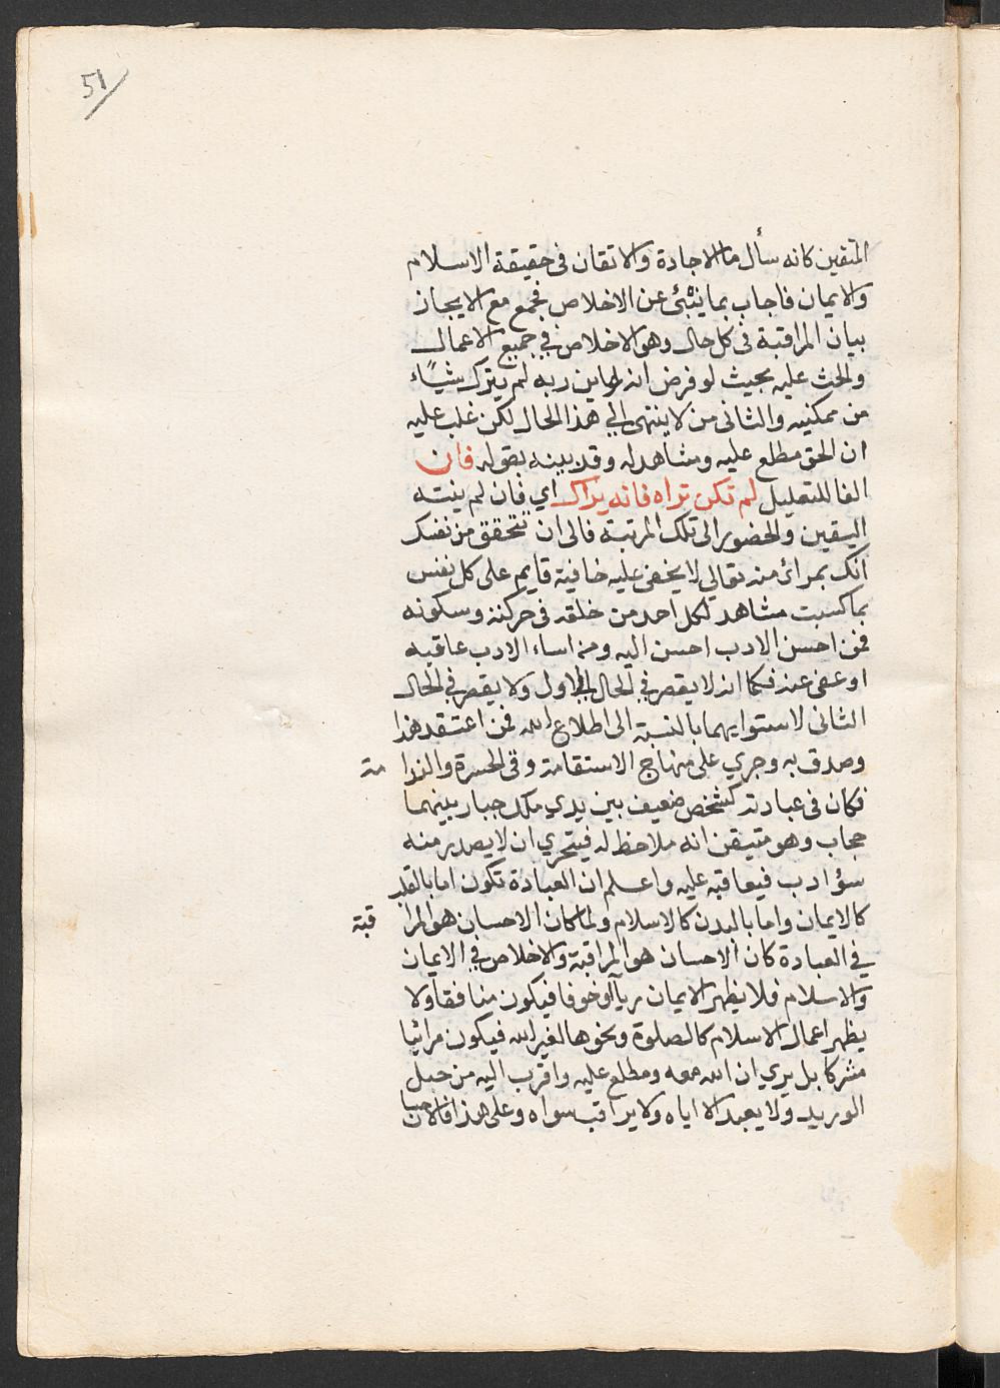 51
المتقين كانه سأل ما الاجادة والاتقان فى حقيقة الاسلام
والايمان فاجاب بما ينبئ عن الاخلاص فجمع مع الايجاز
بيان المراقبة فى كل حال وهو الاخلاص في جميع الاعمال
والحث عليه بحيث لو فرض انه عاين ربه لم يترك شيئاً
من ممكنه والثانى من لا ينتهى الي هذا الحال لكن غلب عليه
ان الحق مطلع عليه ومشاهد له وقد بينه بقوله فان
الفا للتعليل لم تكن تراه فانه يراك اي فان لم ينته
اليقين والحضور الى تلك المرتبة فالى ان تتحقق من نفسك
انك بمرائ منه تعالي لا يخفى عليه خافية قايم على كل نفس
بما كسبت مشاهد لكل احد من خلقه فى حركته وسكونه
فمن احسن الادب احسن اليه ومن اساء الادب عاقبه
او عفى عنه فكما انه لا يقصر في الحال الاول ولا يقصر في الحال
الثانى لاستوايهما بالنسبة الى اطلاع الله فمن اعتقد هذا
وصدق به وجري على منهاج الاستقامة وقى الحسرة والندامة
فكان فى عبادته كشخص ضعيف بين يدي ملك جبار بينهما
حجاب وهو متيقن انه ملاحظ له فيتحري ان لا يصدر منه
سؤ ادب فيعاقبه عليه واعلم ان العبادة تكون اما بالقلب
كالايمان واما بالبدن كالاسلام ولما كان الاحسان هو المراقبة
في العبادة كان الاحسان هو المراقبة والاخلاص في الايمان
والاسلام فلا يظهر الايمان رياً او خوفا فيكون منافقا ولا
يظهر اعمال الاسلام كالصلوة ونحوها لغير الله فيكون مرائيا
مشركا بل يري ان الله معه ومطلع عليه واقرب اليه من حبل
الوريد ولا يعبد الا اياه ولا يراقب سواه وعلى هذا فالاحسان